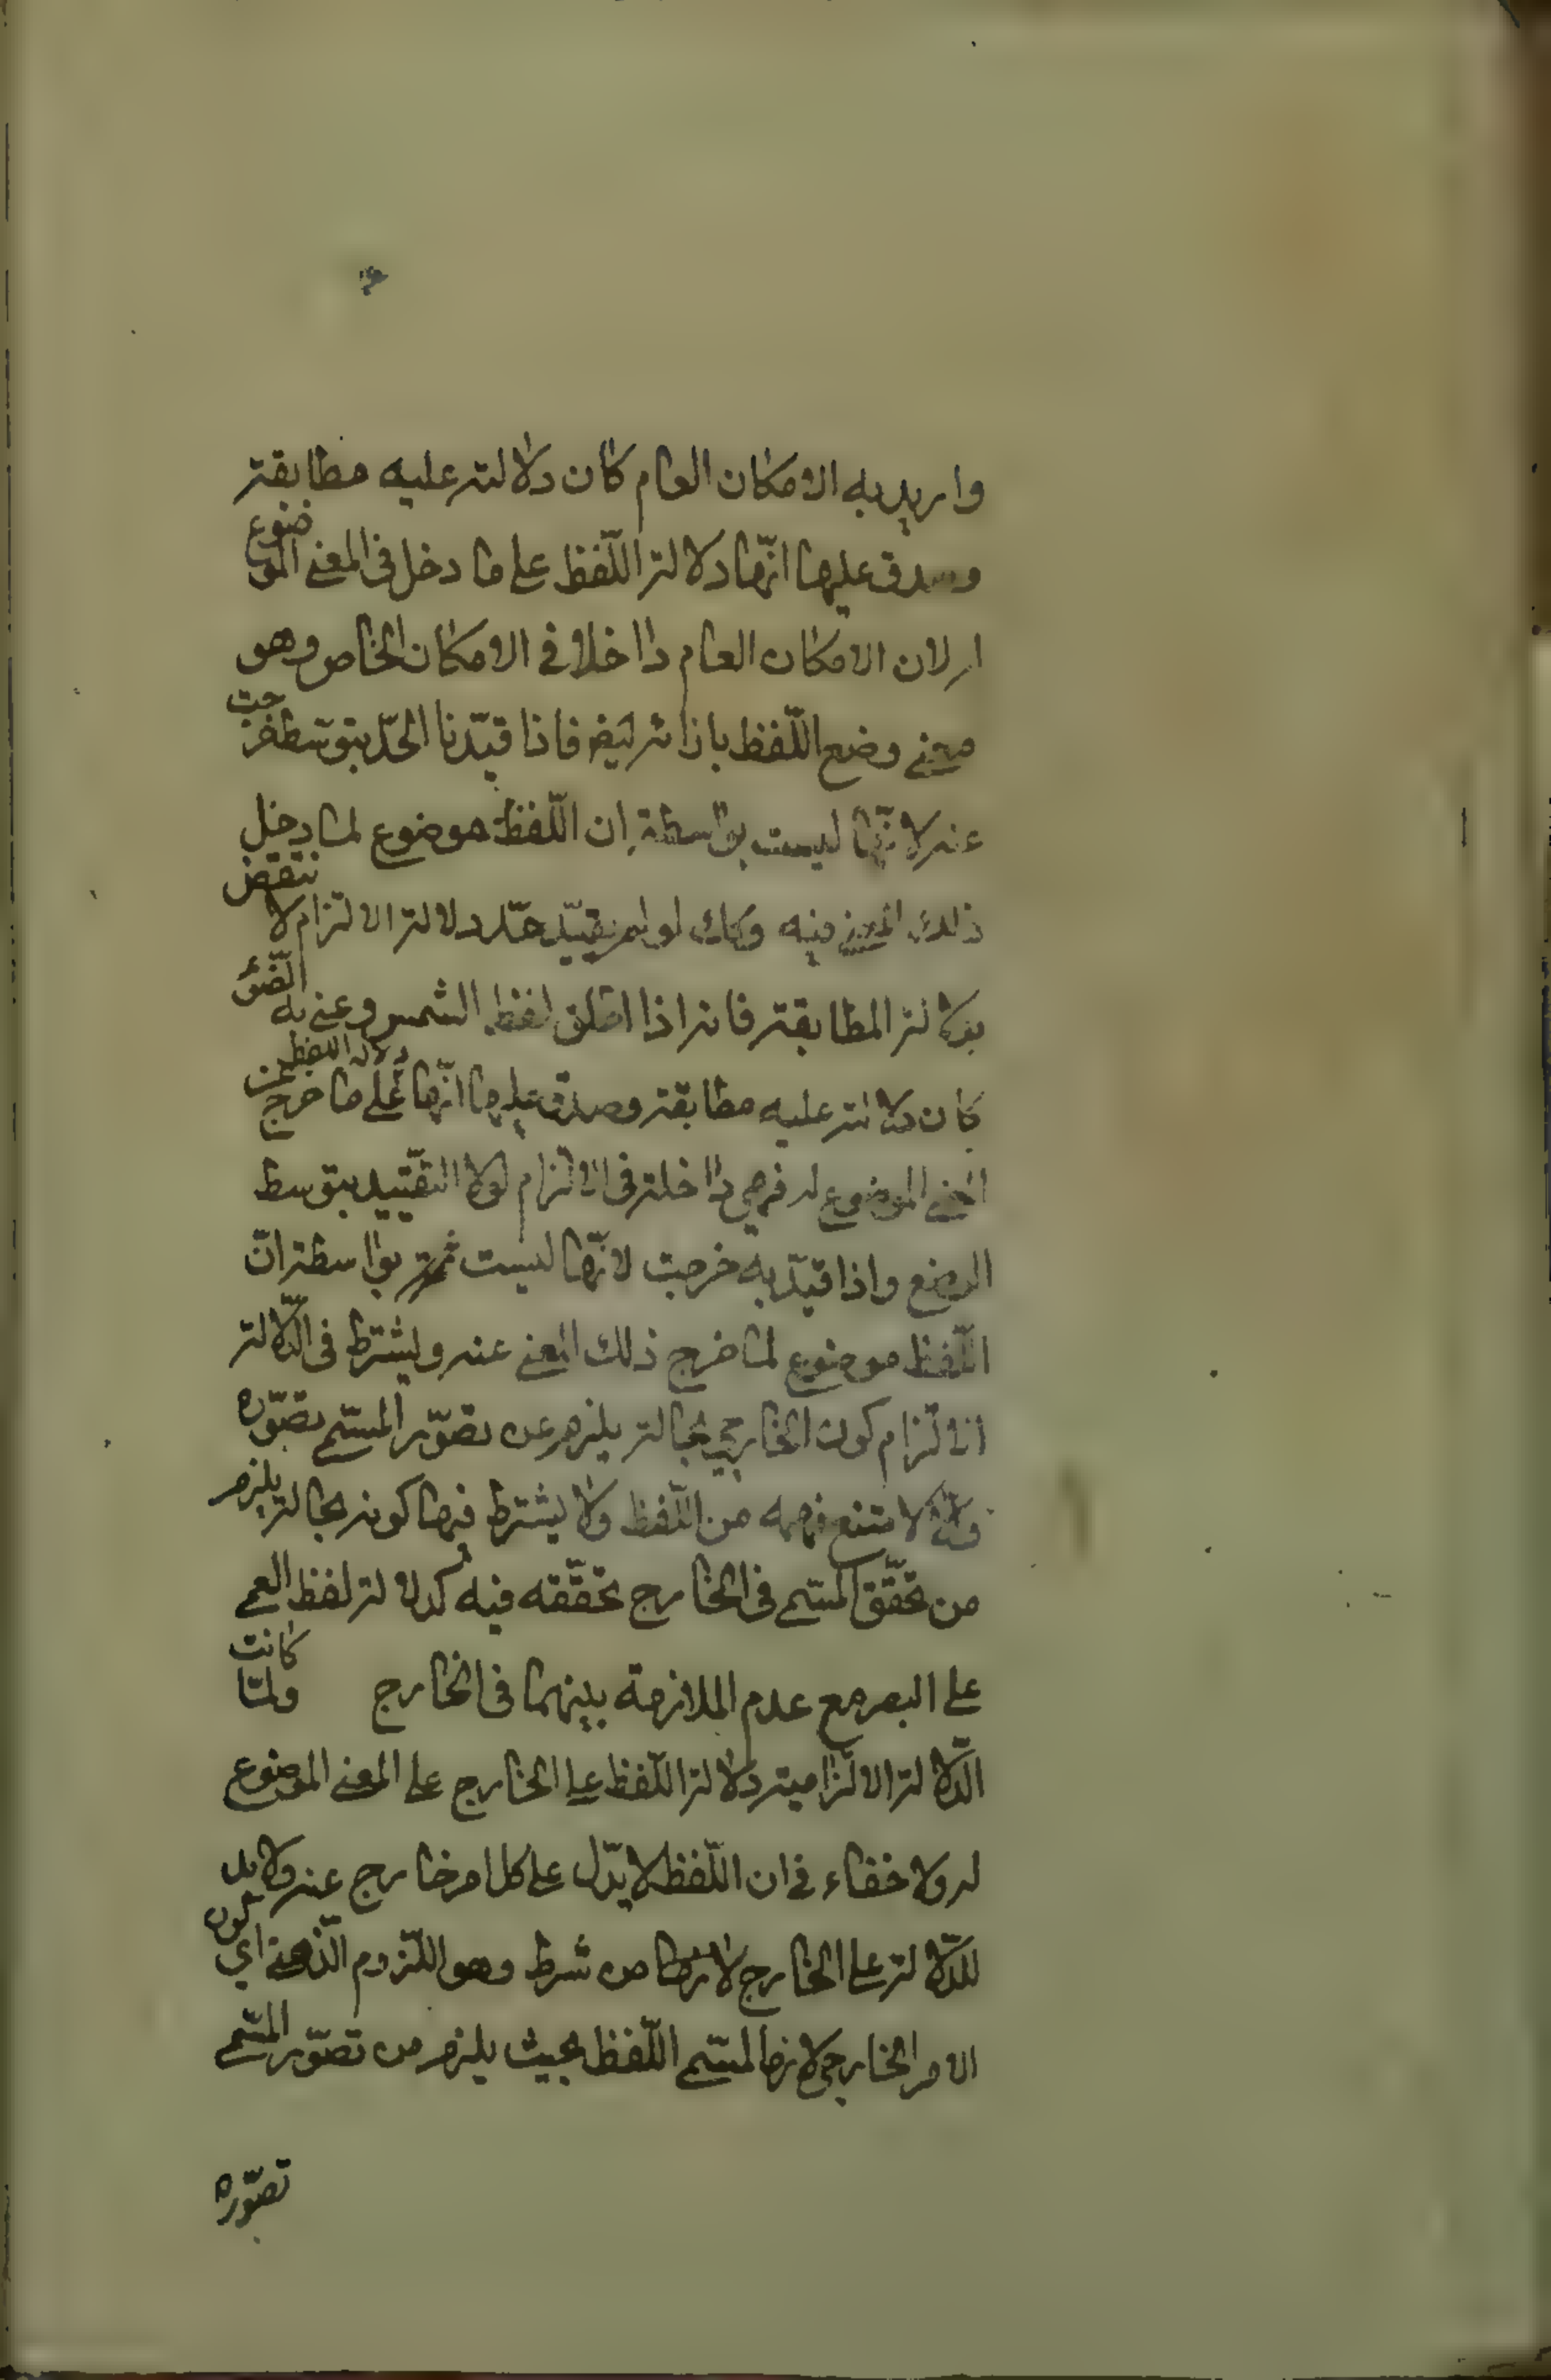 واريد به الامكان العام كان دلالته عليه مطابقة
وصدق عليها انّها دلالة اللّفظ على ما دخل في المعنى الموضوع
له لان الامكان العام داخلا في الامكان الخاص وهو
معنى وضع اللّفظ بازائه ايضا فاذا قيّدنا الحدّ بتوسّط خرجت
عنه لانّها ليست بواسطة ان اللّفظ موضوع لما دخل
ذلك المعنى فيه وكذلك لو لم يقيّد حدّ دلالة الالتزام لانتقض
بدلالة المطابقة فانه اذا اطلق لفظ الشمس وعنى به الضّوء
كان دلالته عليه مطابقة وصدق عليها انّها دلالة اللفظ على ما خرج عن
المعنى الموضوع له فهي داخلة في الالتزام لولا التقّييد بتوسط
الوضع واذا قيّد به خرجت لانّها ليست ثمة بواسطة انّ
اللّفظ موضوع لما خرج ذلك المعنى عنه ويشترط في الدّلالة
الالتزام كون الخارجي بحالة يلزم عن تصوّر المسمّى تصوّره
والّا لامتنع فهمه من اللّفظ ولا يشترط فيها كونه بحالة يلزم
من تحقّق المسمّى في الخارج تحقّقه فيه كدلالة لفظ العمى
على البصر مع عدم الملازمة بينهما في الخارج ولمّا كانت
الدّلالة الالتزامية دلالة اللّفظ على الخارج على المعنى الموضوع
له ولا خفاء في ان اللّفظ لا يدّل على كل امر خارج عنه ولا بد
للدّلالة على الخارج من شرط وهو اللّزوم الذّهنى اي كون
الامر الخارجى لازما لمسمّى اللّفظ بحيث يلزم من تصوّر المسمّى
تصوّره